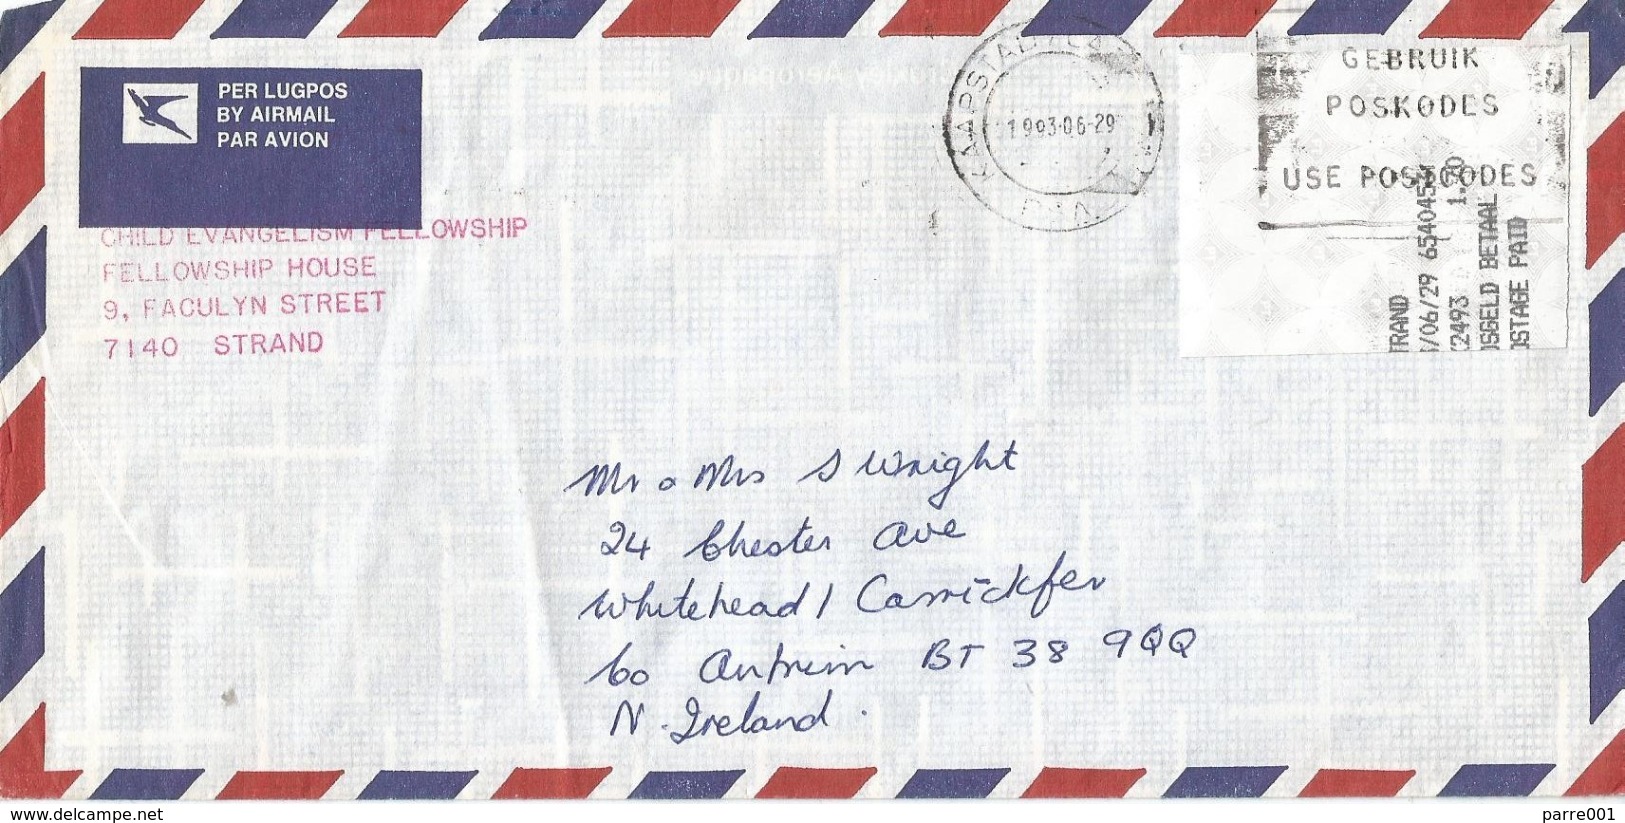 PER LUGPOS
BY AIRMAIL
PAR AVION
CHILD EVANGELISM FELLOWSHIP
FELLOWSHIP HOUSE
9, FACULYN STREET
7140 STRAND
1993-06-29
GEBRUIK
POSKODES
USE POSTCODES
TRAND
/06/29 654045
2493 1.70
OSGELD BETAAL
OSTAGE PAID
Mr & Mrs S Wright
24 Chester Ave
Whitehead / Carrickfer
Co Antrim BT 38 9QQ
N. Ireland.
delcampe.net
parre001